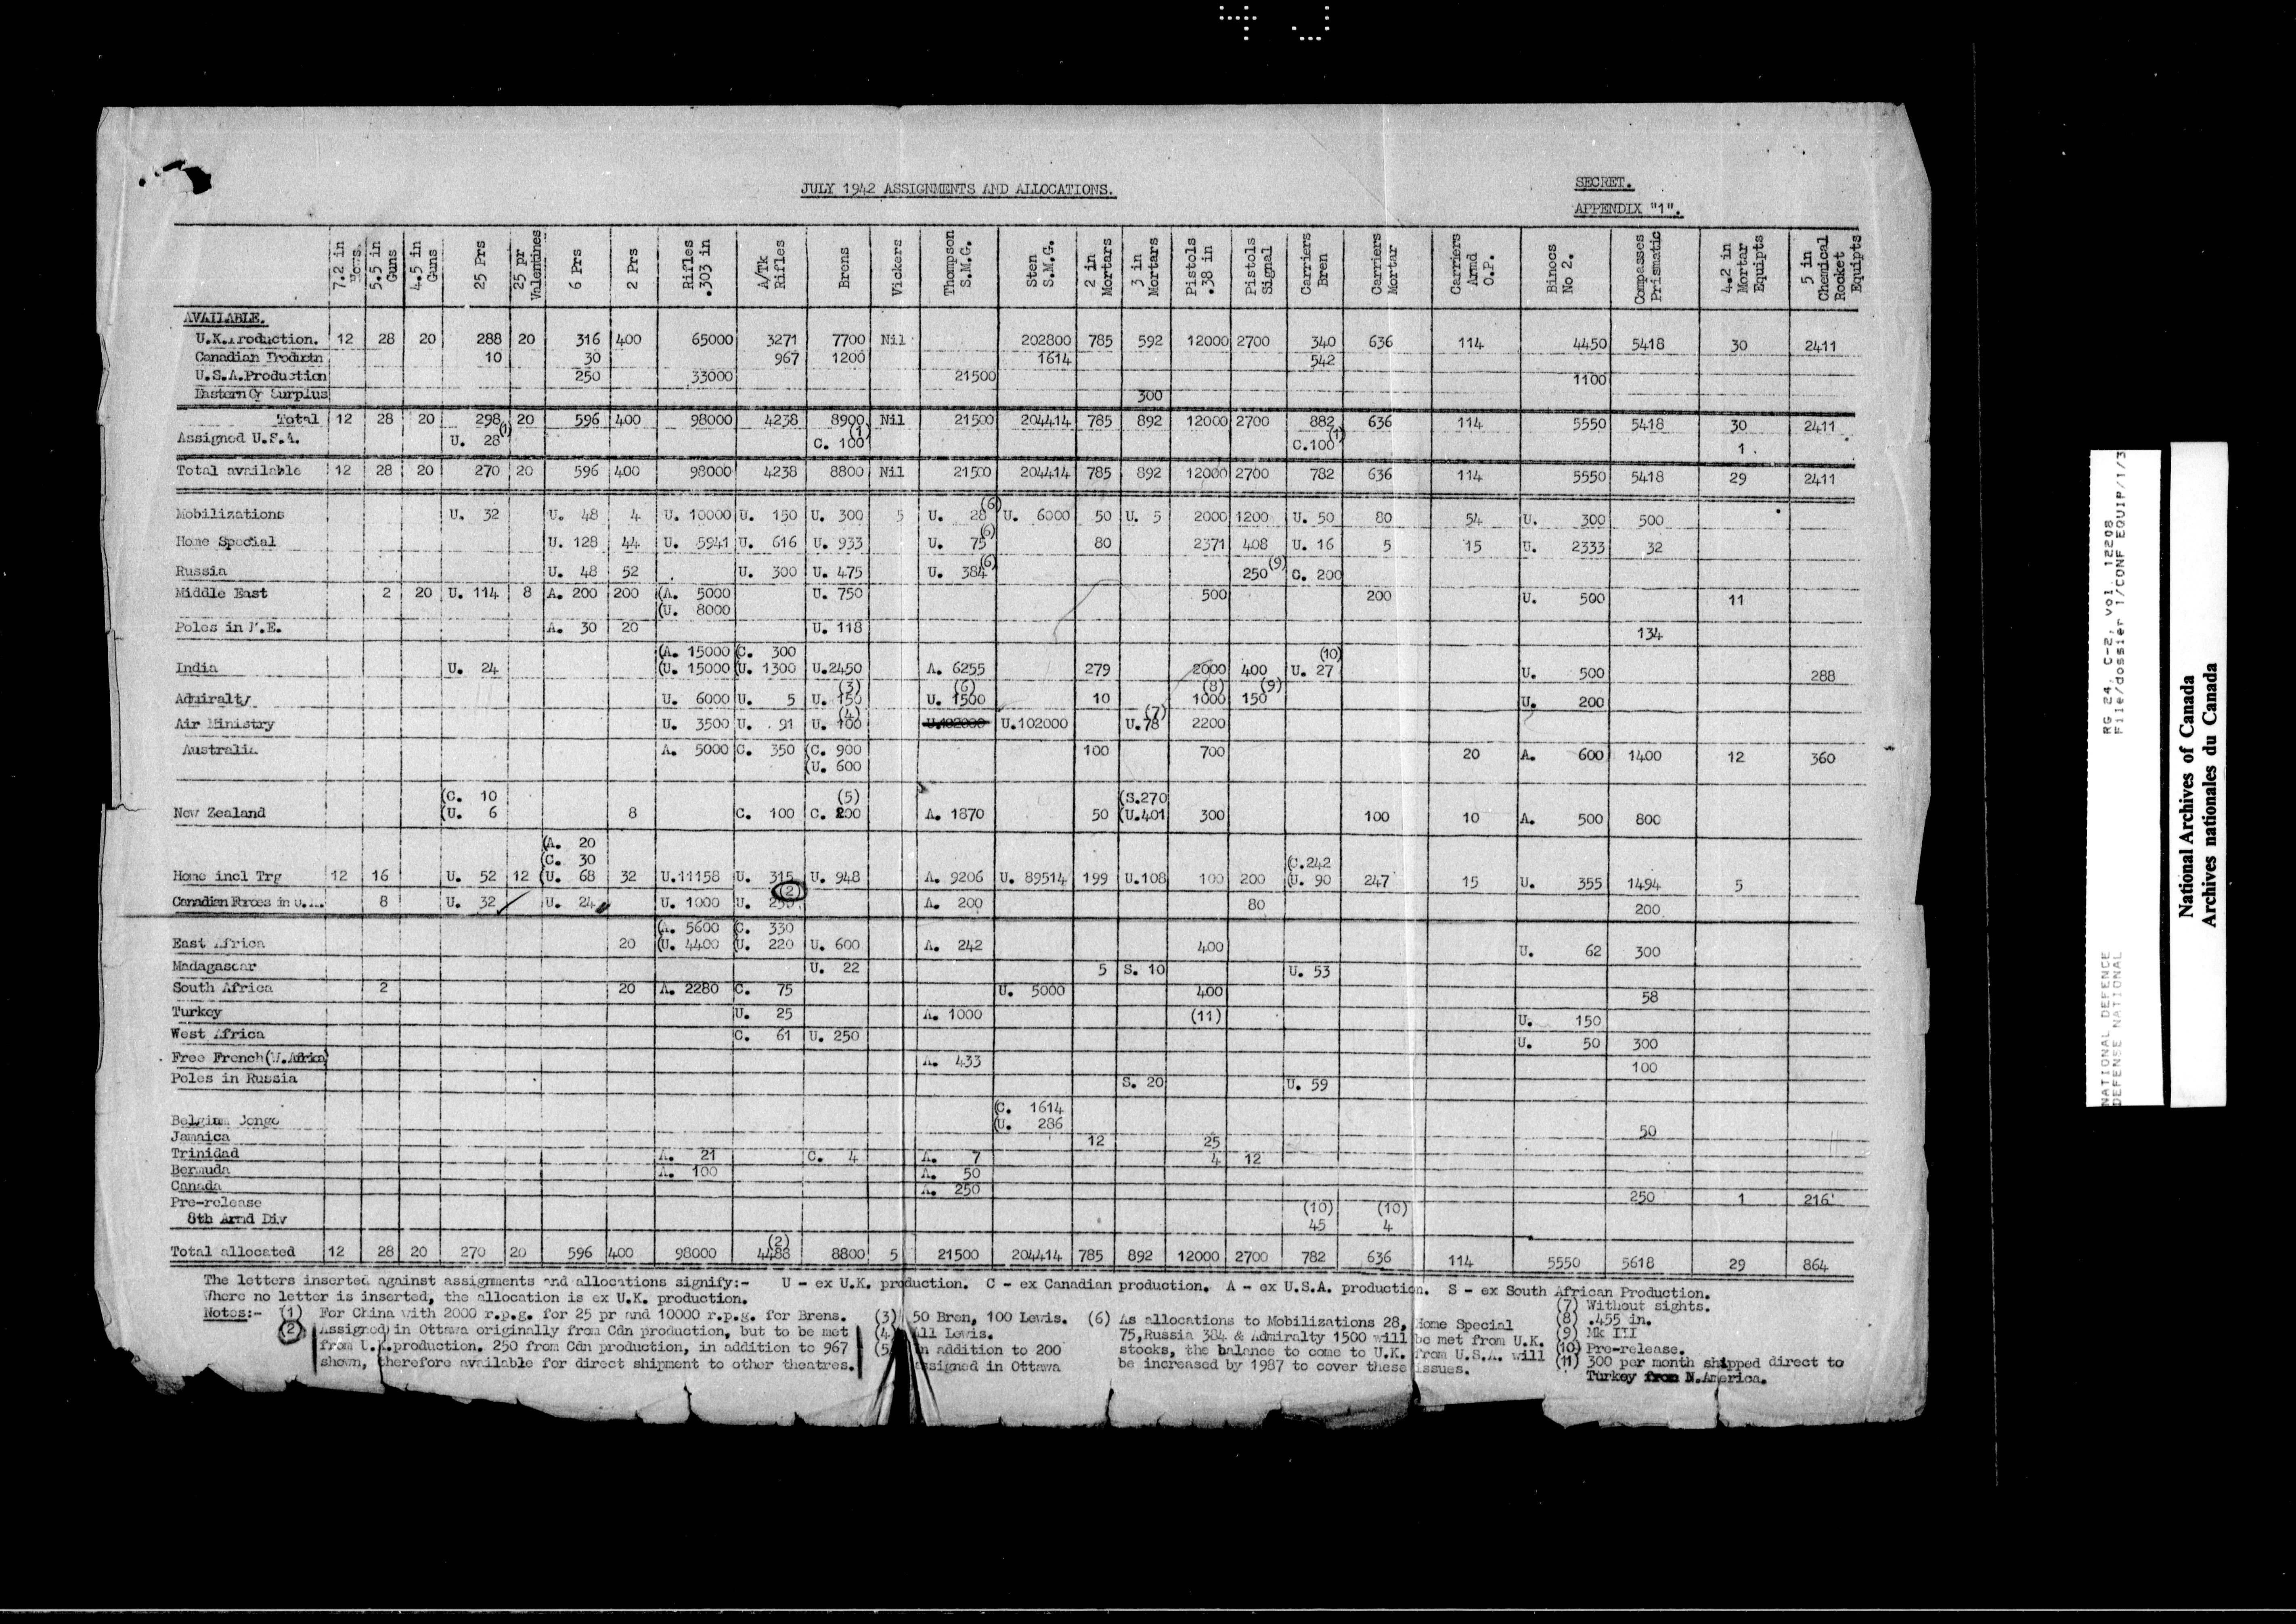 JULY 1942 ASSIGNMENTS AND ALLOCATIONS.
SECRET.
APPENDIX "1".
7.2 in Hows. 5.5 in Guns 4.5 in Guns 25 Prs 25 pr Valentines 6 Prs 2 Prs Rifles .303 in A/Tk Rifles Brens Vickers Thompson S.M.G. Sten S.M.G. 2 in Mortars 3 in Mortars Pistols .38 in Pistols Signal Carriers Bren Carriers Mortar Carriers Armd O.P. Binocs No 2. Compasses Prismatic 4.2 in Mortar Equipts 5 in Chemical Rocket Equipts
AVAILABLE.
U.K.Production. 12 28 20 288 20 316 400 65000 3271 7700 Nil 202800 785 592 12000 2700 340 636 114 4450 5418 30 2411
Canadian Productn 10 30 967 1200 1614 542
U.S.A.Production 250 33000 21500 1100
Eastern Gp Surplus 300
Total 12 28 20 298 20 596 400 98000 4238 8900 Nil 21500 204414 785 892 12000 2700 882 636 114 5550 5418 30 2411
Assigned U.S.A. U. 28(1) C. 100(1) C.100(1) 1.
Total available 12 28 20 270 20 596 400 98000 4238 8800 Nil 21500 204414 785 892 12000 2700 782 636 114 5550 5418 29 2411
Mobilizations U. 32 U. 48 4 U. 10000 U. 150 U. 300 5 U. 28(6) U. 6000 50 U. 5 2000 1200 U. 50 80 54 U. 300 500
Home Special U. 128 44 U. 5941 U. 616 U. 933 U. 75(6) 80 2371 408 U. 16 5 15 U. 2333 32
Russia U. 48 52 U. 300 U. 475 U. 384(6) 250(9) C. 200
Middle East 2 20 U. 114 8 A. 200 200 (A. 5000 U. 750 500 200 U. 500 11
(U. 8000
Poles in M.E. A. 30 20 U. 118 134
(A. 15000 (C. 300 (10)
India U. 24 (U. 15000 (U. 1300 U.2450 A. 6255 279 2000 400 U. 27 U. 500 288
(3) (6) (8) (9)
Admiralty U. 6000 U. 5 U. 150 U. 1500 10 1000 150 U. 200
(4) (7)
Air Ministry U. 3500 U. 91 U. 100 U.102000 U.102000 U.78 2200
Australia A. 5000 C. 350 (C. 900 100 700 20 A. 600 1400 12 360
(U. 600
(C. 10 (5) (S.270
New Zealand (U. 6 8 C. 100 C. 200 A. 1870 50 (U.401 300 100 10 A. 500 800
(A. 20
(C. 30 (C.242
Home incl Trg 12 16 U. 52 12 (U. 68 32 U.11158 U. 315 U. 948 A. 9206 U. 89514 199 U.108 100 200 (U. 90 247 15 U. 355 1494 5
(2)
Canadian Forces in U.K. 8 U. 32 U. 24 U. 1000 U. 250 A. 200 80 200
(A. 5600 (C. 330
East Africa 20 (U. 4400 (U. 220 U. 600 A. 242 400 U. 62 300
Madagascar U. 22 5 S. 10 U. 53
South Africa 2 20 A. 2280 C. 75 U. 5000 400 58
Turkey U. 25 A. 1000 (11) U. 150
West Africa C. 61 U. 250 U. 50 300
Free French(W.Africa) A. 433 100
Poles in Russia S. 20 U. 59
(C. 1614
Belgium Congo (U. 286 50
Jamaica 12 25
Trinidad A. 21 C. 4 A. 7 4 12
Bermuda A. 100 A. 50
Canada A. 250 250 1 216
Pre-release (10) (10)
8th Armd Div 45 4
(2)
Total allocated 12 28 20 270 20 596 400 98000 4488 8800 5 21500 204414 785 892 12000 2700 782 636 114 5550 5618 29 864
The letters inserted against assignments and allocations signify:- U - ex U.K. production. C - ex Canadian production. A - ex U.S.A. production. S - ex South African Production.
Where no letter is inserted, the allocation is ex U.K. production.
Notes:- (1) For China with 2000 r.p.g. for 25 pr and 10000 r.p.g. for Brens.
(2) Assigned in Ottawa originally from Cdn production, but to be met
from U.K.production. 250 from Cdn production, in addition to 967
shown, therefore available for direct shipment to other theatres.
(3) 50 Bren, 100 Lewis.
(4) All Lewis.
(5) In addition to 200
assigned in Ottawa
(6) As allocations to Mobilizations 28, Home Special
75,Russia 384 & Admiralty 1500 will be met from U.K.
stocks, the balance to come to U.K. from U.S.A. will
be increased by 1987 to cover these issues.
(7) Without sights.
(8) .455 in.
(9) Mk III
(10) Pre-release.
(11) 300 per month shipped direct to
Turkey from N.America.
NATIONAL DEFENCE RG 24, C-2, vol. 12208
DEFENSE NATIONAL File/dossier 1/CONF EQUIP/1/3
National Archives of Canada
Archives nationales du Canada